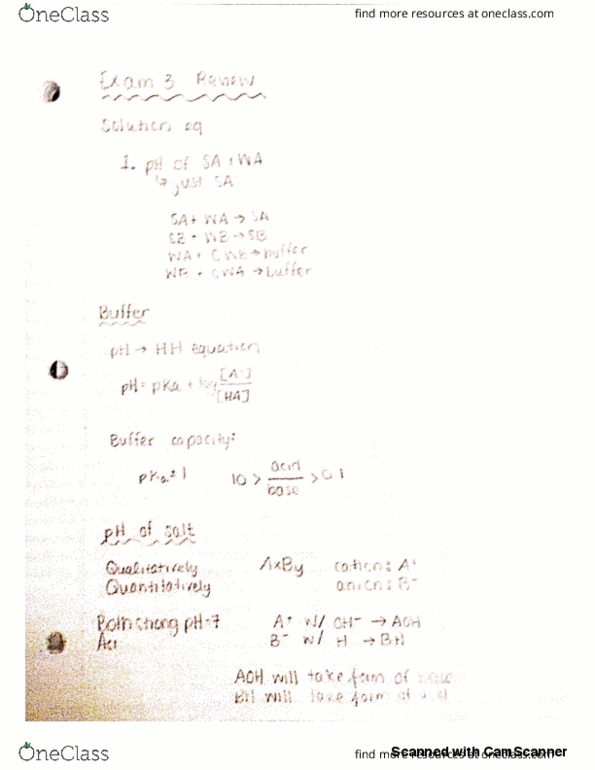 OneClass
find more resources at oneclass.com
Exam 3 Review
Solution eq
1. pH of SA + WA
↳ just SA
SA + WA → SA
SB + WB → SB
WA + CWB → buffer
WB + CWA → buffer
Buffer
pH → HH equation
pH = pKa + log [A-]
[HA]
Buffer capacity:
pKa ± 1
10 > acid > 0.1
base
pH of salt
Qualitatively
AxBy
cation: A+
Quantitatively
anion: B-
Both strong pH=7
A+ w/ OH- → AOH
B- w/ H → BH
AOH will take form of
BH will take form of
OneClass
find more resources at oneclass.com
Scanned with CamScanner